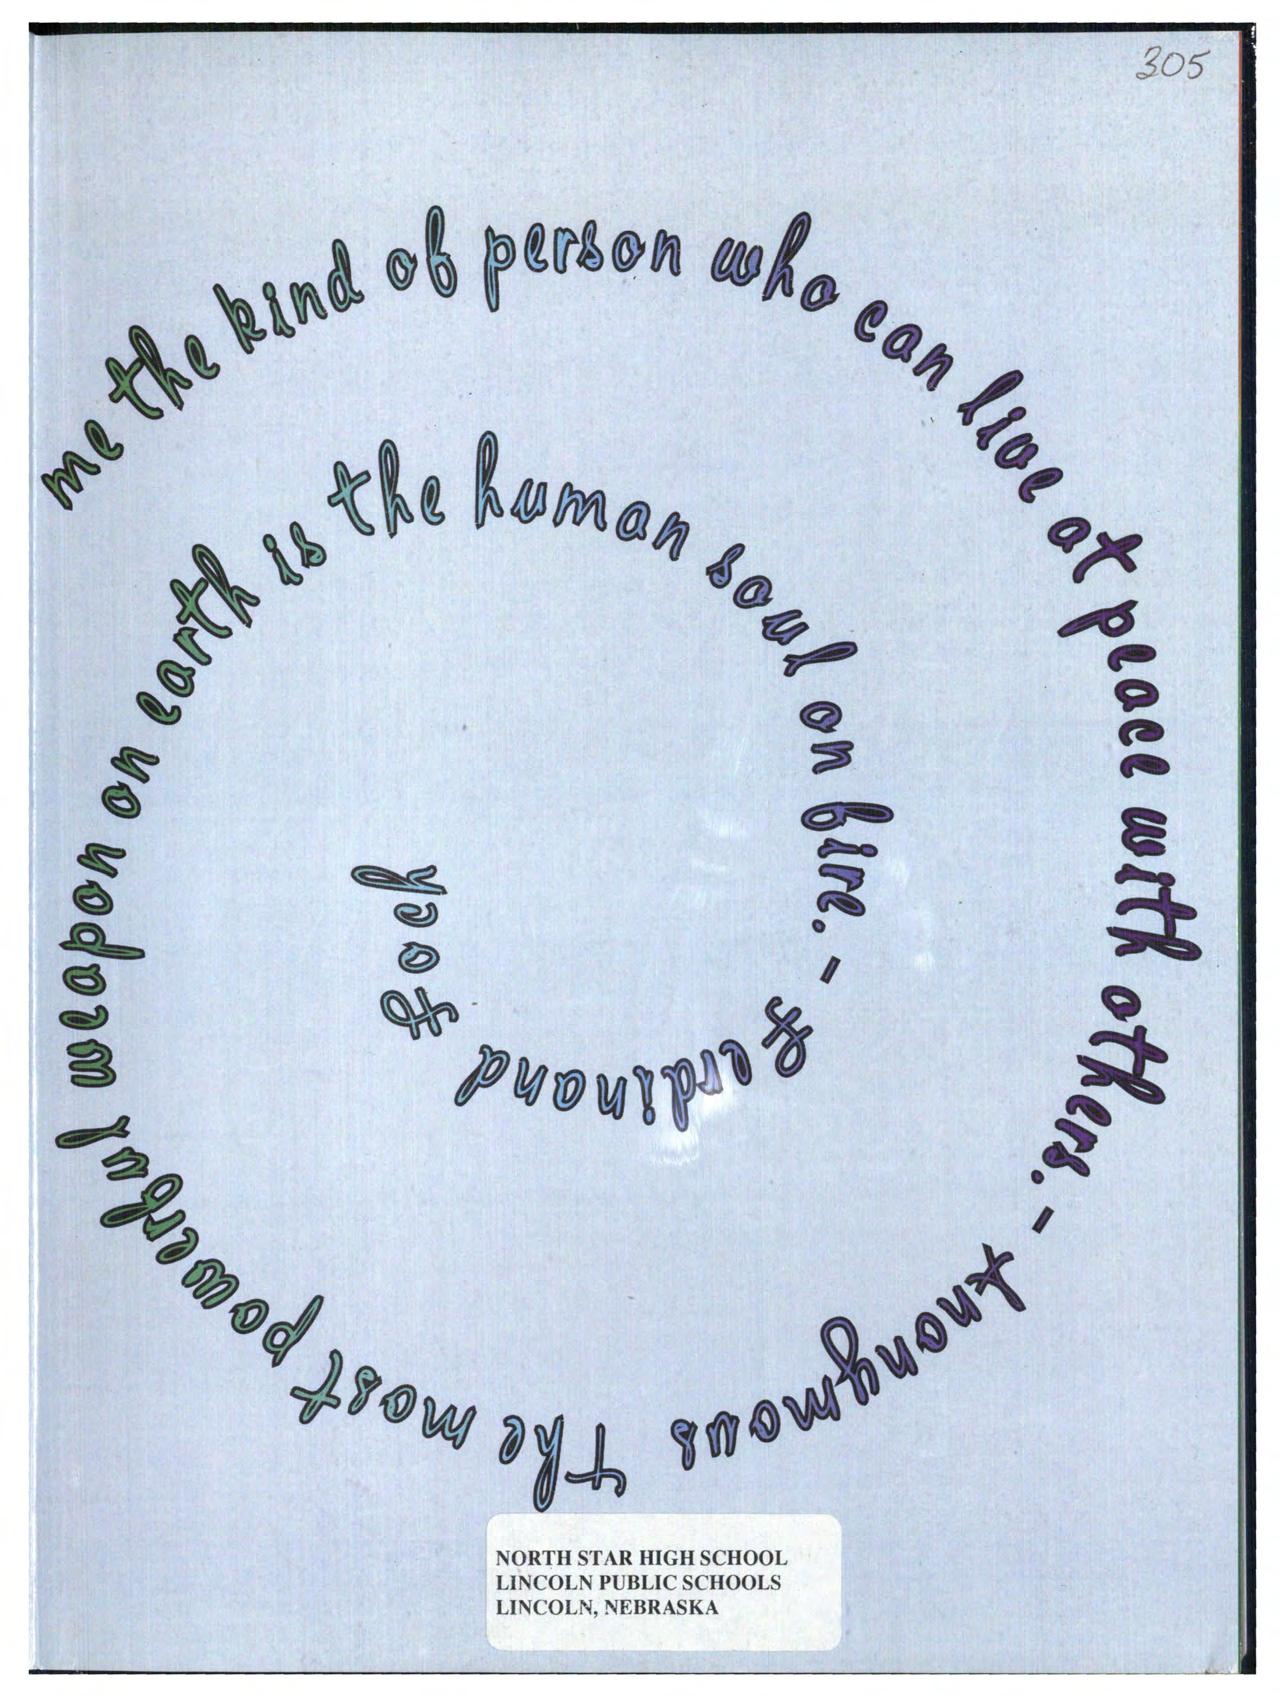 305
me the kind of person who can live at peace with others. - Anonymous The most powerful weapon on earth is the human soul on fire. - Ferdinand Foch
NORTH STAR HIGH SCHOOL
LINCOLN PUBLIC SCHOOLS
LINCOLN, NEBRASKA